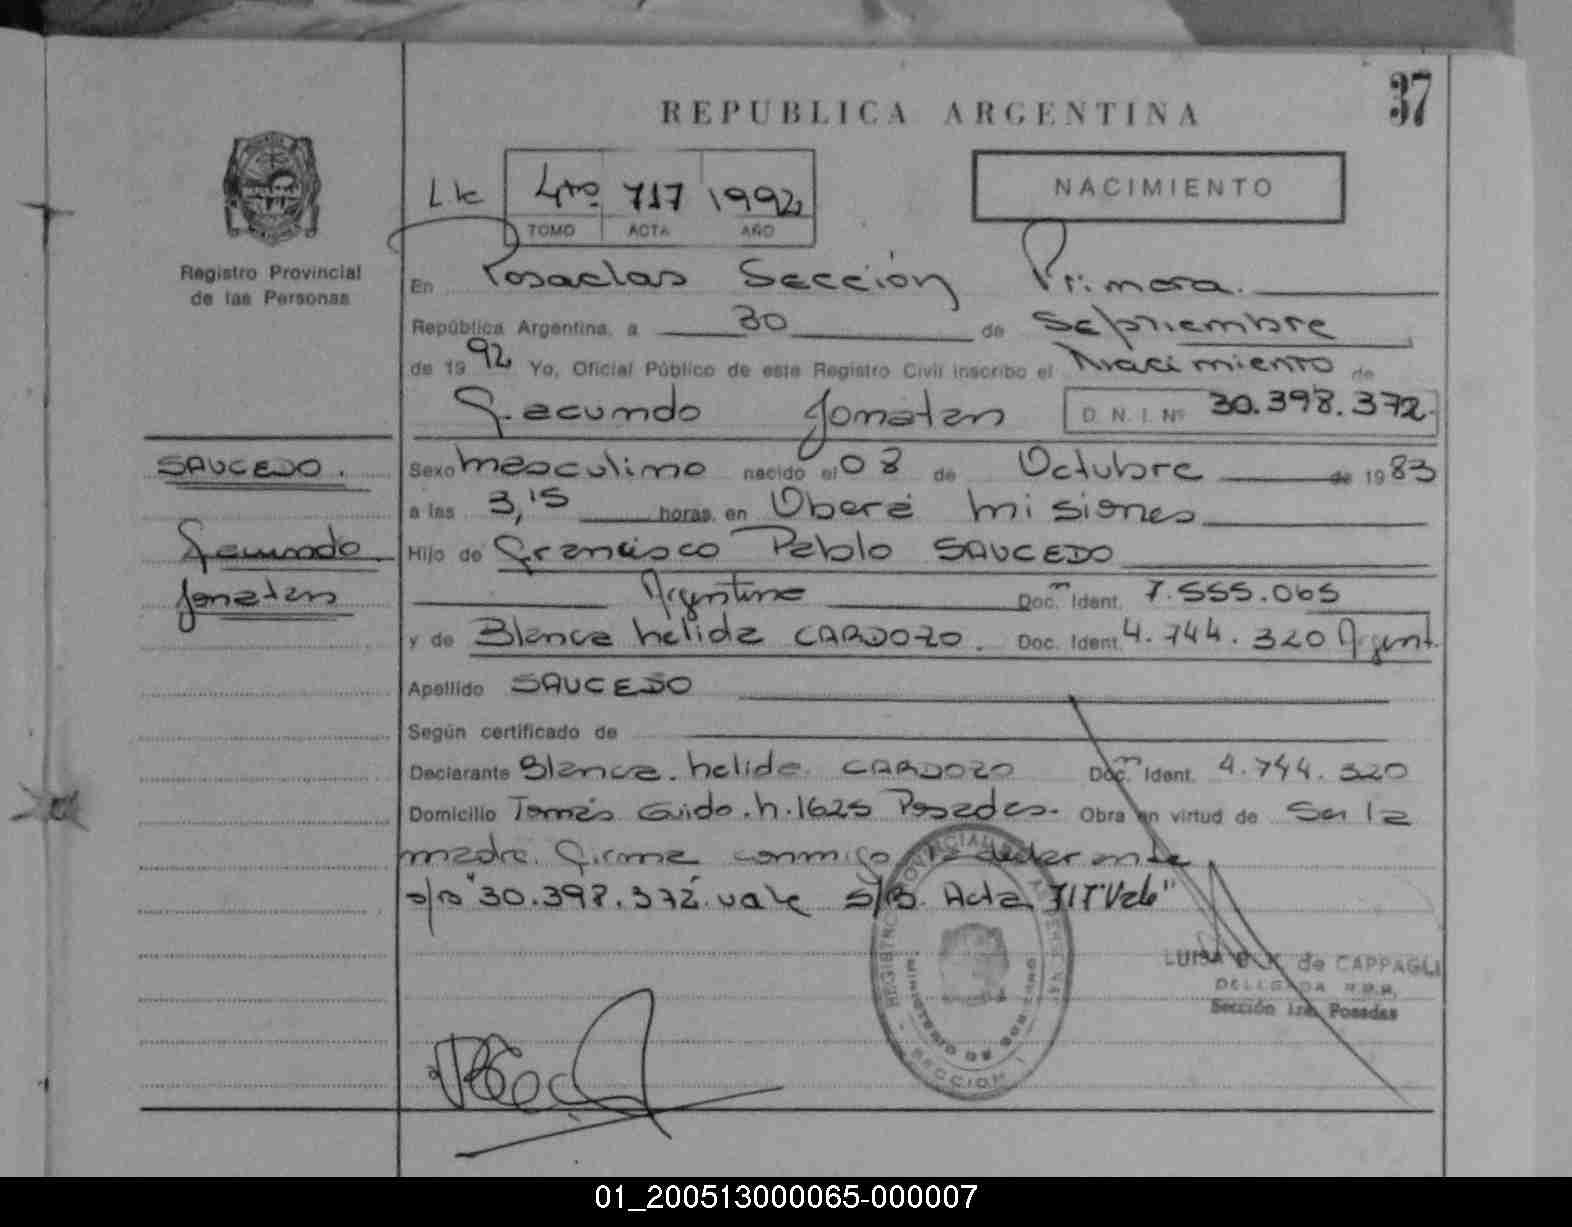 37
REPUBLICA ARGENTINA
NACIMIENTO
4to 717 1992
TOMO ACTA AÑO
Registro Provincial
de las Personas
En Posadas Sección Primera.
República Argentina, a 30 de Septiembre
de 1992 Yo, Oficial Público de este Registro Civil inscribo el Nacimiento de
Facundo Jonatan D. N. I. Nº 30.398.372
SAUCEDO.
Facundo
Jonatan
Sexo masculino nacido el 08 de Octubre de 1983
a las 3,15 horas, en Oberá Misiones
Hijo de Francisco Pablo SAUCEDO
Argentino Doc. Ident. 7.555.065
y de Blanca helida CARDOZO. Doc. Ident. 4.744.320 Argent.
Apellido SAUCEDO
Según certificado de
Declarante Blanca. helida. CARDOZO Doc. Ident. 4.744.320
Domicilio Tomás Guido. N. 1625 Posadas. Obra en virtud de Ser la
madre. Firma conmigo la declarante
s/b "30.398.372" vale s/B. Acta 717 "Vale"
REGISTRO PROVINCIAL DE LAS PERSONAS
MINISTERIO DE GOBIERNO
SECCION 1
LUISA de CAPPAGLI
DELEGADA R.P.P.
Sección 1ra. Posadas
01_200513000065-000007